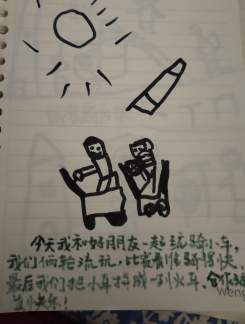 今天我和好朋友一起玩骑小车,
我们俩轮流玩,比赛看谁骑得快,
最后我们把小车拼成一列火车,合作
快乐!
weng